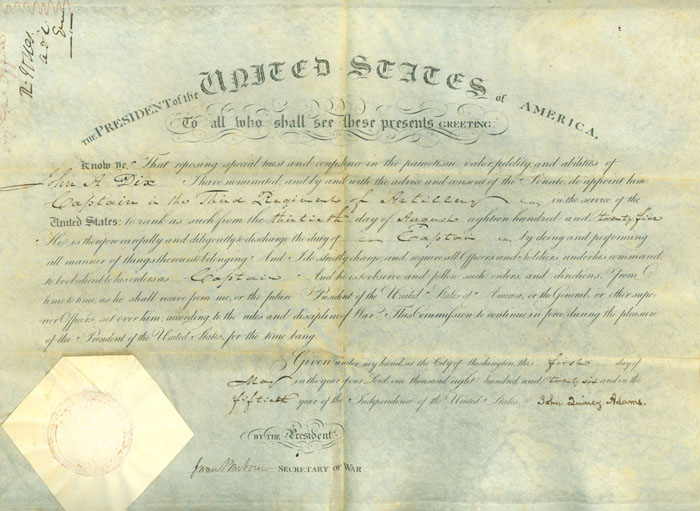 THE PRESIDENT of the UNITED STATES of AMERICA.
To all who shall see these presents GREETING
Know ye, That reposing special trust and confidence in the patriotism, valor, fidelity, and abilities of
John A Dix I have nominated, and by and with the advice and consent of the Senate, do appoint him
Captain in the Third Regiment of Artillery in the service of the
United States: to rank as such from the thirtieth day of August eighteen hundred and twenty five
He is therefore carefully and diligently to discharge the duty of Captain by doing and performing
all manner of things thereunto belonging. And I do strictly charge, and require all Officers and Soldiers under his command,
to be obedient to his orders as Captain And he is to observe and follow such orders, and directions, from
time to time, as he shall receive from me, or the future President of the United States of America, or the General, or other supe-
rior Officers set over him, according to the rules and discipline of War. This Commission to continue in force during the pleasure
of the President of the United States, for the time being.
Given under my hand, at the City of Washington, this first day of
May in the year of our Lord, one thousand eight hundred and twenty six and in the
fiftieth year of the Independence of the United States. John Quincy Adams.
BY THE President
James Barbour SECRETARY OF WAR.